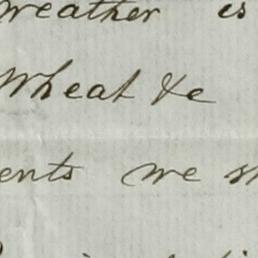 weather is
Wheat &c
ents we